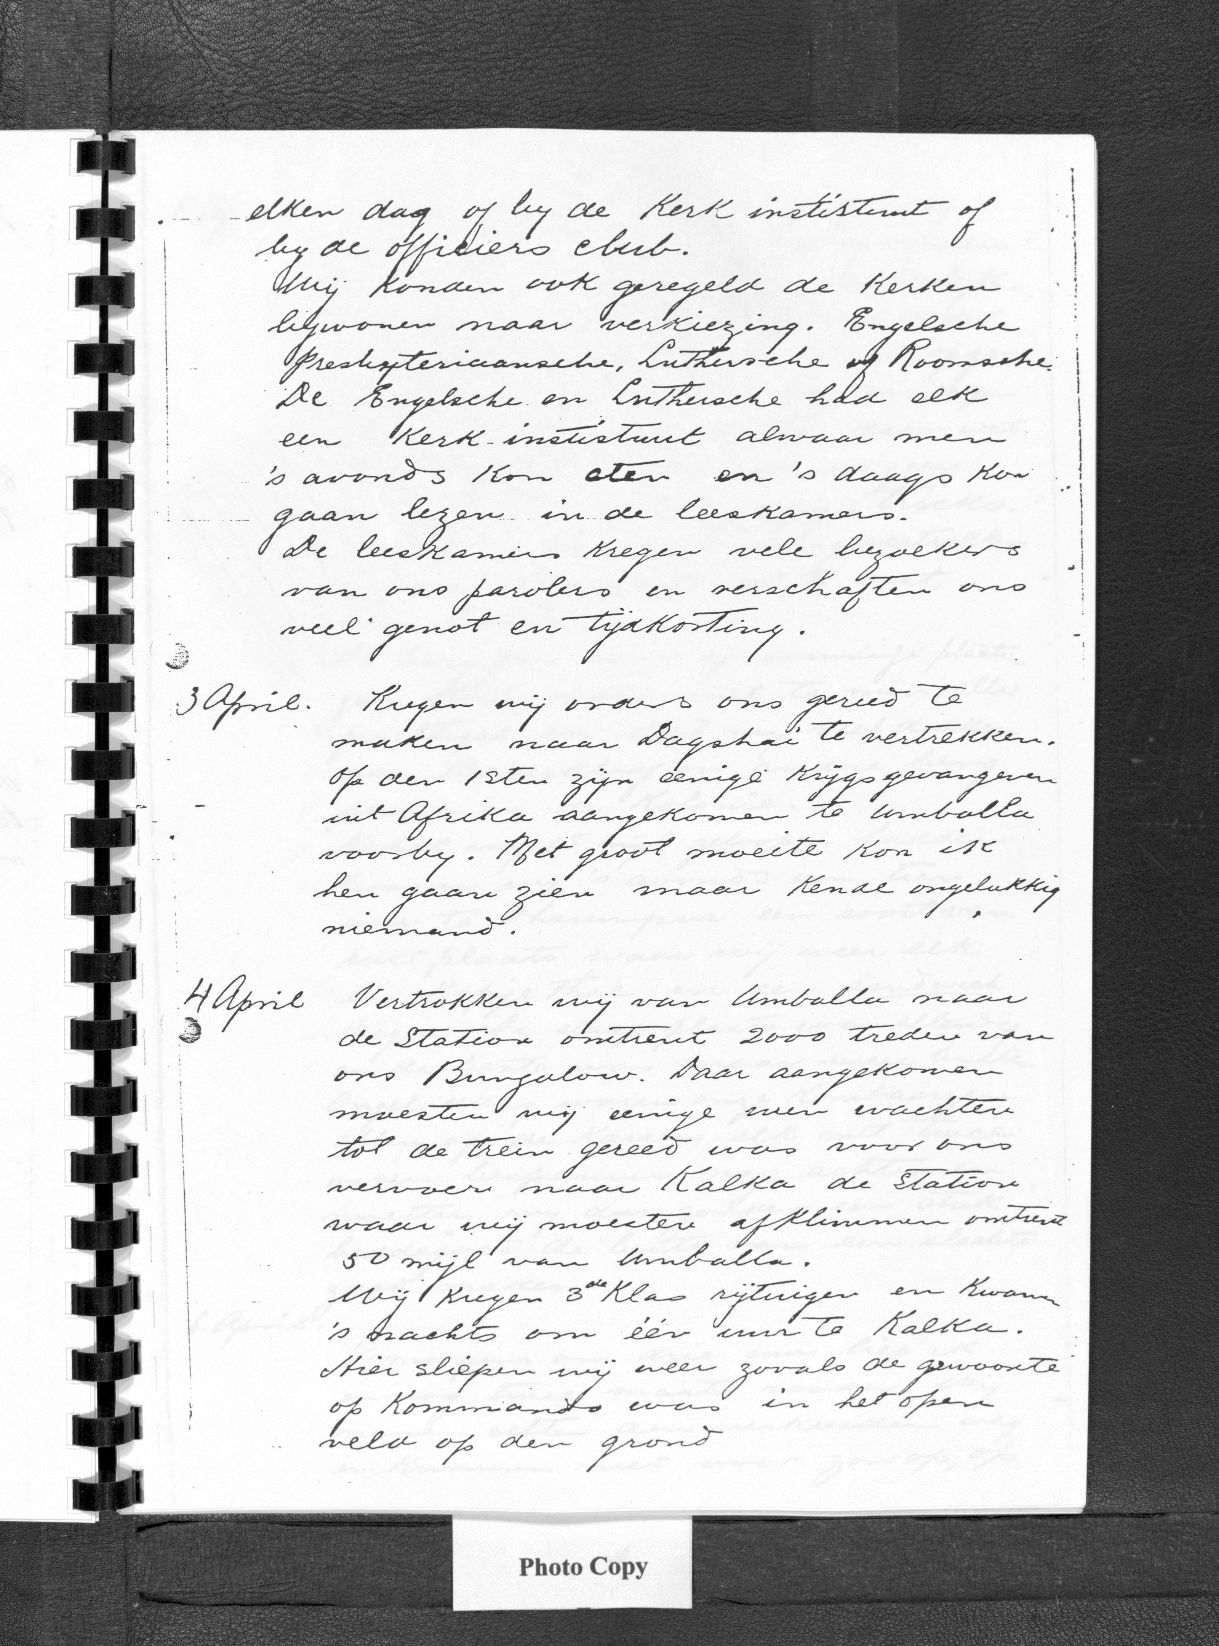 elken dag of by de Kerk institstuut of
by de officiers club.
Wij konden ook geregeld de Kerken
bijwonen naar verkiezing. Engelsche
Presbyteriaansche, Luthersche of Roomsche.
De Engelsche en Luthersche had elk
een Kerk-institstuut alwaar men
's avonds kon eten en 's daags kon
gaan lezen in de leeskamers.
De leeskamers kregen vele bezoekers
van ons parolers en verschaften ons
veel genot en tijdkorting.
3 April. Kregen wij orders ons gereed te
maken naar Dagshai te vertrekken.
op den 1sten zijn eenige krijgsgevangenen
uit Afrika aangekomen te Umballa
voorby. Met groot moeite kon ik
hen gaan zien maar kende ongelukkig
niemand.
4 April Vertrokken wij van Umballa naar
de Station omtrent 2000 treden van
ons Bungalow. Daar aangekomen
moesten wij eenige uren wachten
tot de trein gereed was voor ons
vervoer naar Kalka de Station
waar wij moesten afklimmen omtrent
50 mijl van Umballa.
Wij kregen 3de Klas rijtuigen en kwam
's nachts om één uur te Kalka.
Hier sliepen wij weer zooals de gewoonte
op Kommando was in het open
veld op den grond
Photo Copy